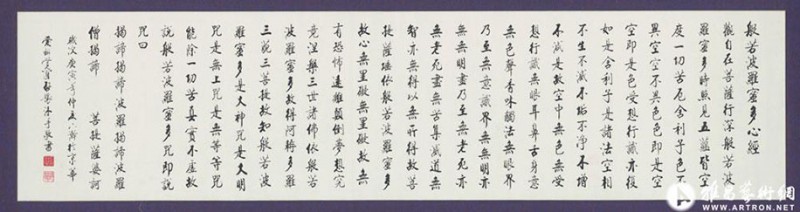 般若波羅蜜多心經
觀自在菩薩行深般若波
羅蜜多時照見五蘊皆空
度一切苦厄舍利子色不
異空空不異色色即是空
空即是色受想行識亦復
如是舍利子是諸法空相
不生不滅不垢不淨不增
不減是故空中無色無受
想行識無眼耳鼻舌身意
無色聲香味觸法無眼界
乃至無意識界無無明亦
無無明盡乃至無老死亦
無老死盡無苦集滅道無
智亦無得以無所得故菩
提薩埵依般若波羅蜜多
故心無罣礙無罣礙故無
有恐怖遠離顛倒夢想究
竟涅槃三世諸佛依般若
波羅蜜多故得阿耨多羅
三藐三菩提故知般若波
羅蜜多是大神咒是大明
咒是無上咒是無等等咒
能除一切苦真實不虛故
說般若波羅蜜多咒即說
咒曰
揭諦揭諦波羅揭諦波羅
僧揭諦 菩提薩婆訶
雅昌藝術網
WWW.ARTRON.NET